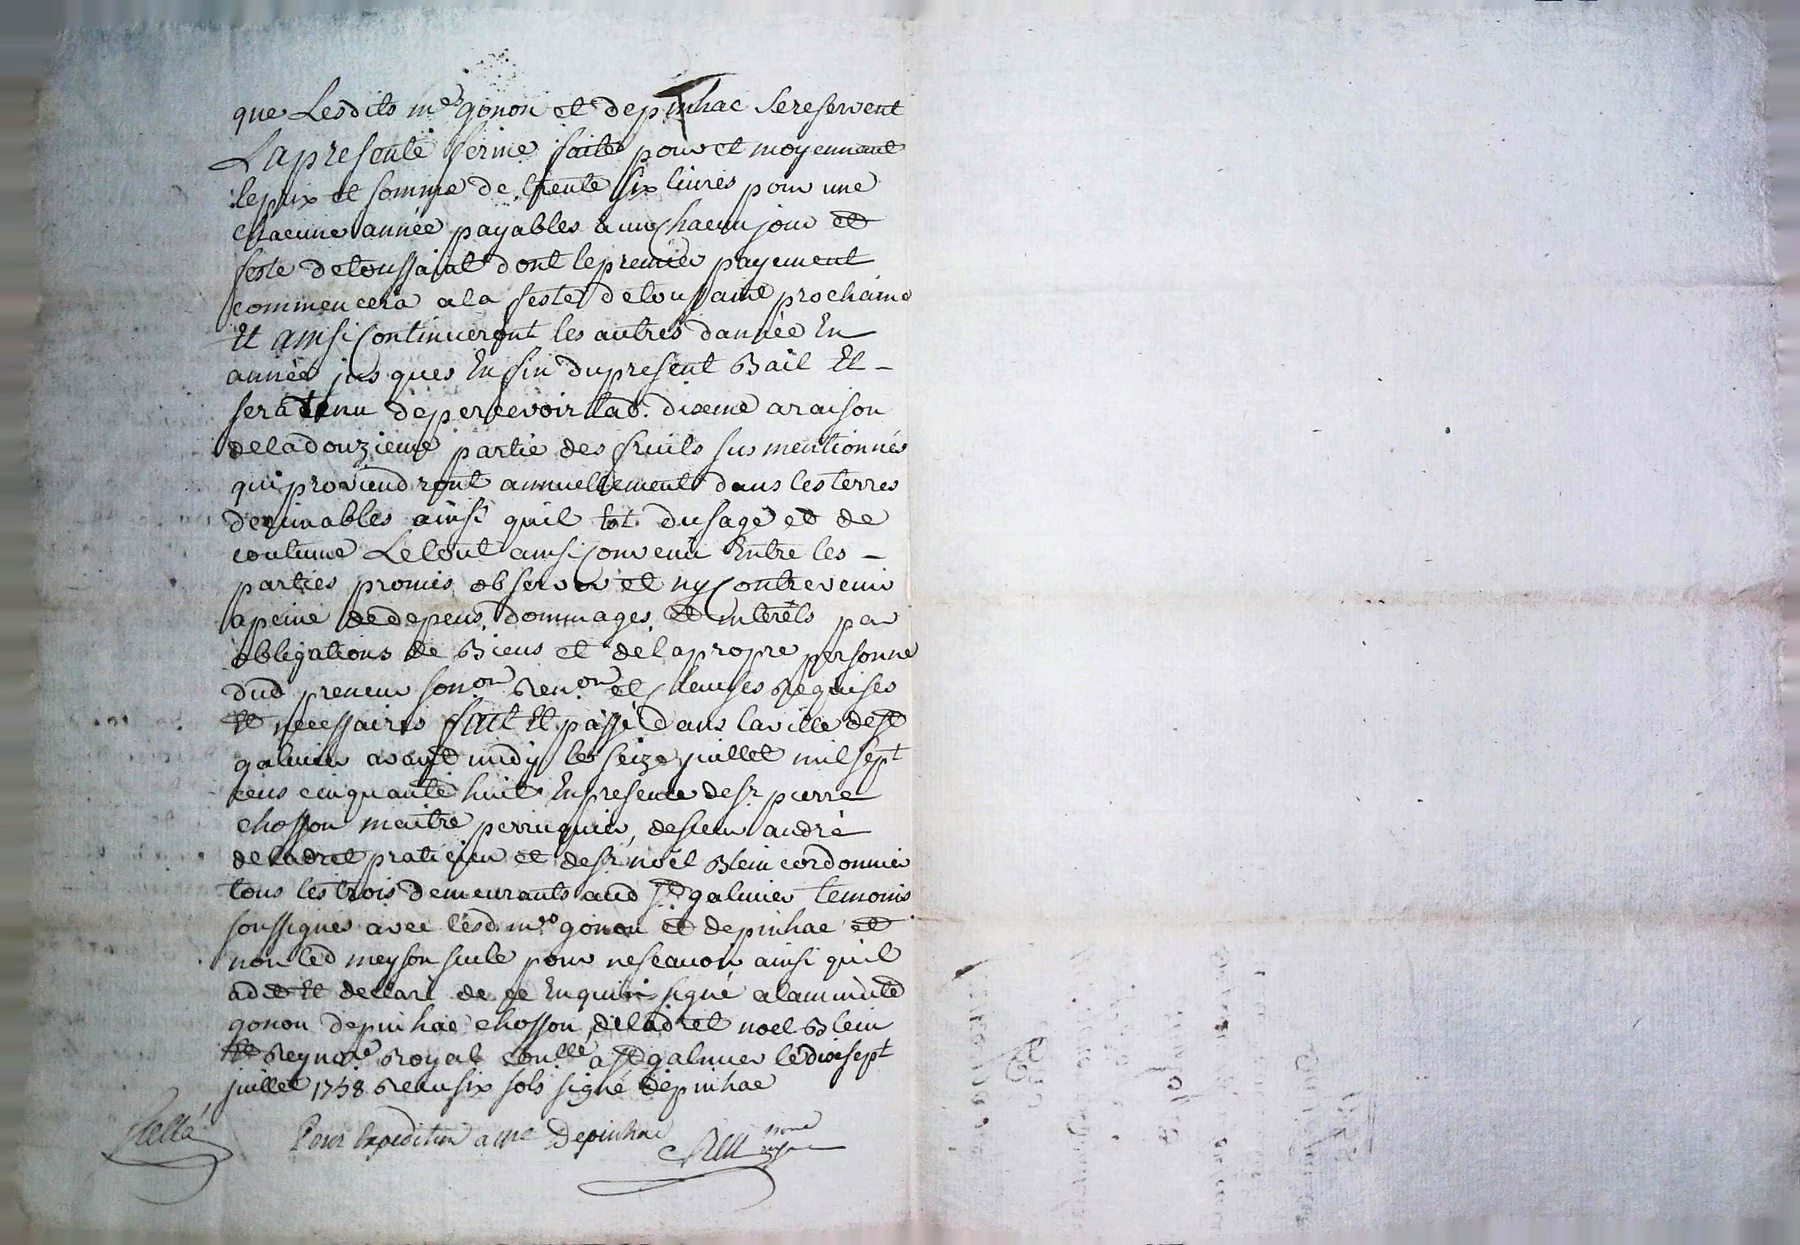 que Lesdits mes gonon et depinhac se reservent
La presente ferme faite pour et moyennant
le prix et somme de trente six livres pour une
chacune année payables a un chacun jour et
feste de toussaint dont le premier payement
commencera a la feste de toussaint prochaine
Et ainsi Continueront les autres d'année En
année jusques En fin du present Bail Et -
sera tenu de percevoir lad. dixeme a raison
de la douzieme partie des fruits sus mentionnés
qui proviendront annuellement dans les terres
deximables ainsi quil est dusage et de
coutume Le tout ainsi Convenu Entre les -
parties promis observer et ny Contrevenir
a peine de depens, dommages, et interêts par
obligations de Biens et de la propre personne
dud preneur son on Ren on et Clauses Requises
et necessaires fait Et passé dans la ville de st
galmier avant midy le seize juillet mil sept
cens cinquante huit En presence de sr pierre
chosson maitre perruquier, de sieur andré
deladret praticien et de sr noël Blein cordonnier
tous les trois demeurants aud st galmier temoins
soussignes avec lesd. mes gonon et depinhac et
non led meyson seule pour ne scavoir ainsi quil
a dit Et declaré de ce Enquis signé a la minute
gonon depinhac chosson, deladret noel Blein
et Reyn re Royal Conllé a st galmier le dixsept
juillet 1758 Receu six sols signé depinhac
Pour Expedition a me Depinhac